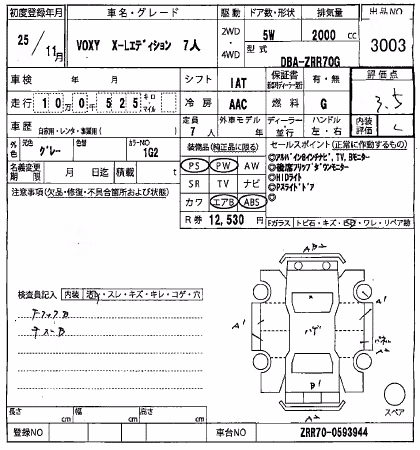 初度登録年月 車名・グレード 駆動 ドア数・形状 排気量 出品NO
25/11月 VOXY X-Lエディション 7人 2WD・4WD 5W 2000 cc 3003
型式 DBA-ZRR70G
車検 年 月 シフト IAT 保証書 有・無 評価点 3.5
走行 10万0千525 キロ・マイル 冷房 AAC 燃料 G 内装評価 C
車歴 自家用・レンタ・事業用( ) 定員 7人 外車モデル 年 ディーラー・並行 ハンドル 左・右
元色 グレー 色替 カラーNO 1G2 装備品 (純正品に限る) セールスポイント (正常に作動するもの)
名義変更期限 月 日迄 積載 t PS PW AW
注意事項(欠品・修復・不具合箇所および状態) SR TV ナビ
カワ エアB ABS
R券 12,530 円
◎アルパイン8インチナビ、TV、Bモニター
◎後席フリップダウンモニター
◎HIDライト
◎Pスライドドア
◎
Fガラス トビ石・キズ・ワレ・リペア跡
検査員記入 内装 ・スレ・キズ・キレ・コゲ・穴
A2
A1 A1
A2
B1
A2
スペア
長さ cm 幅 cm 高さ cm
登録NO 車台NO ZRR70-0593944